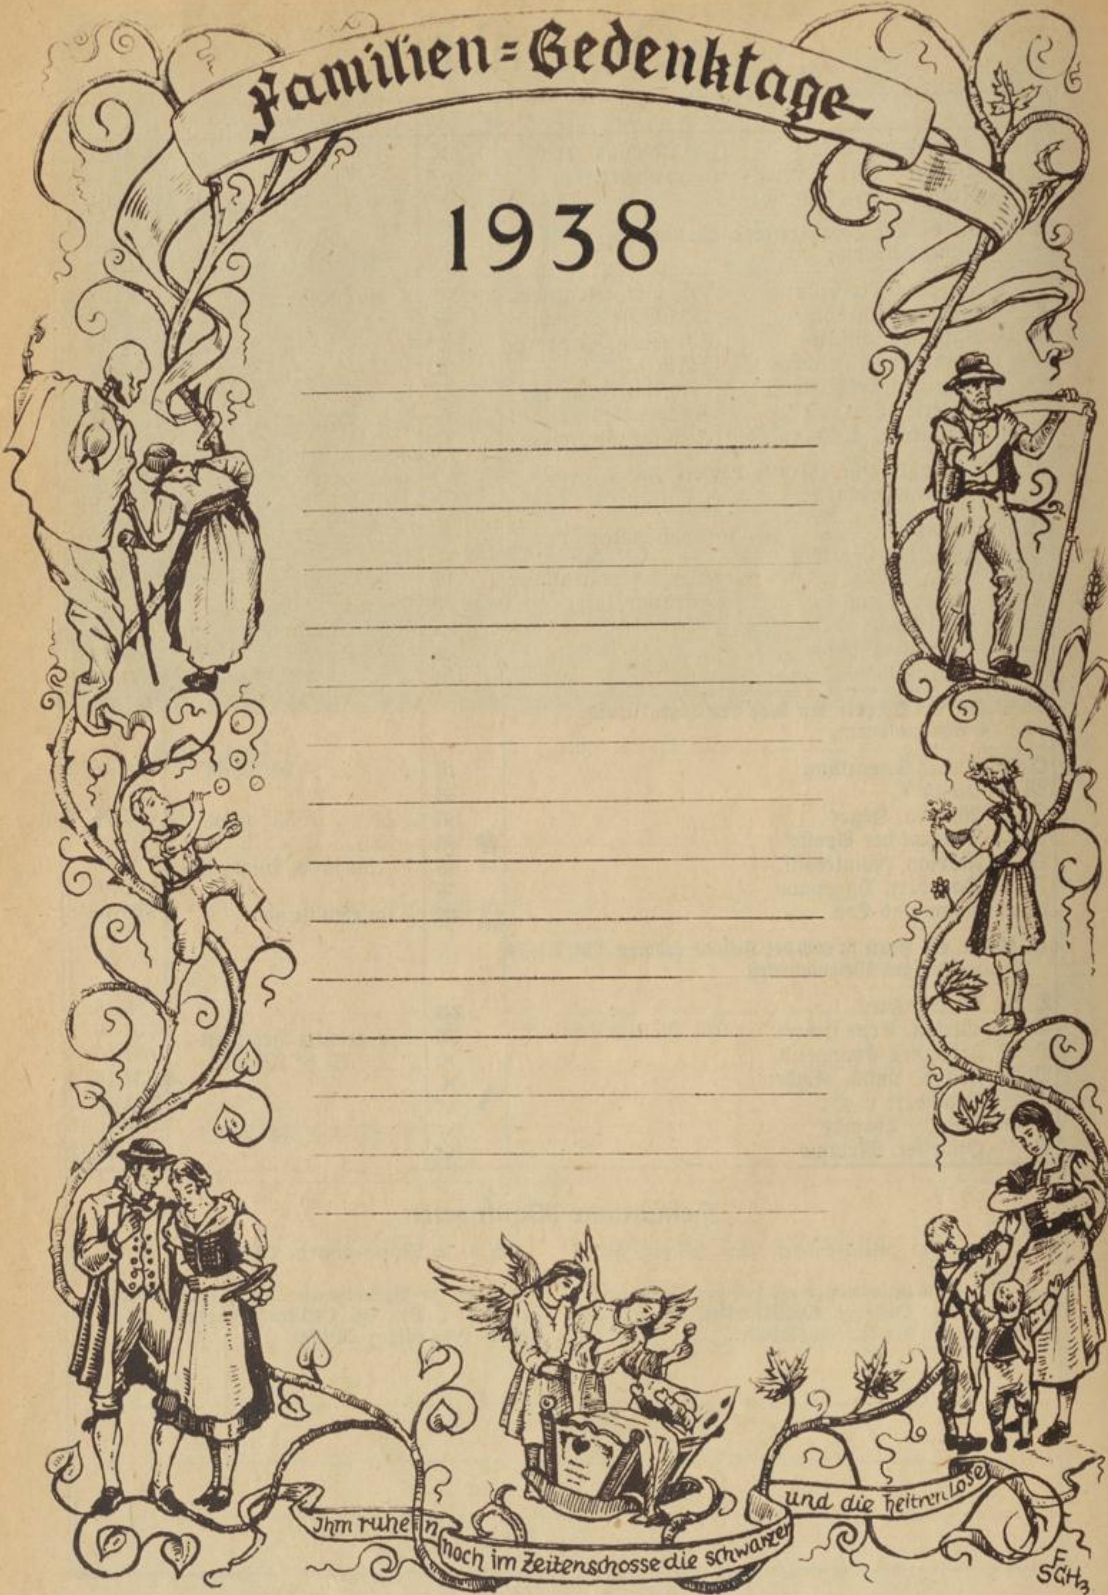 Familien=Gedenktage
1938
Ihm ruhen
noch im Zeitenschosse die schwarzen
und die heitren Lose
F.
SCH